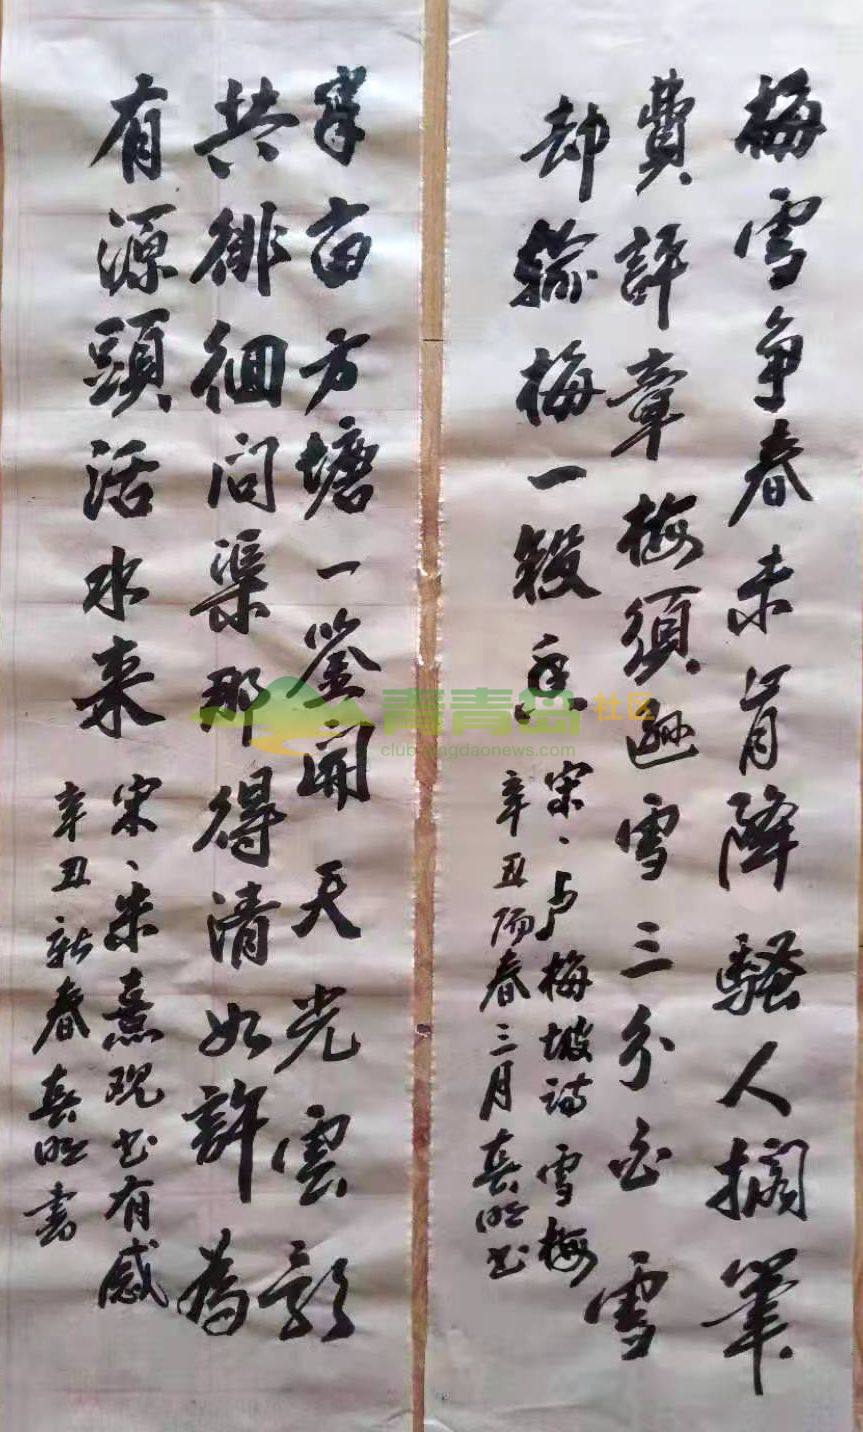 梅雪争春未肯降騷人擱筆
費評章梅須遜雪三分白雪
却输梅一段香
宋、卢梅坡诗雪梅
辛丑阳春三月书
半亩方塘一鉴開天光雲影
共徘徊问渠那得清如許為
有源頭活水来
宋、朱熹观书有感
辛丑新春書
青青岛社区
club.qingdaonews.com